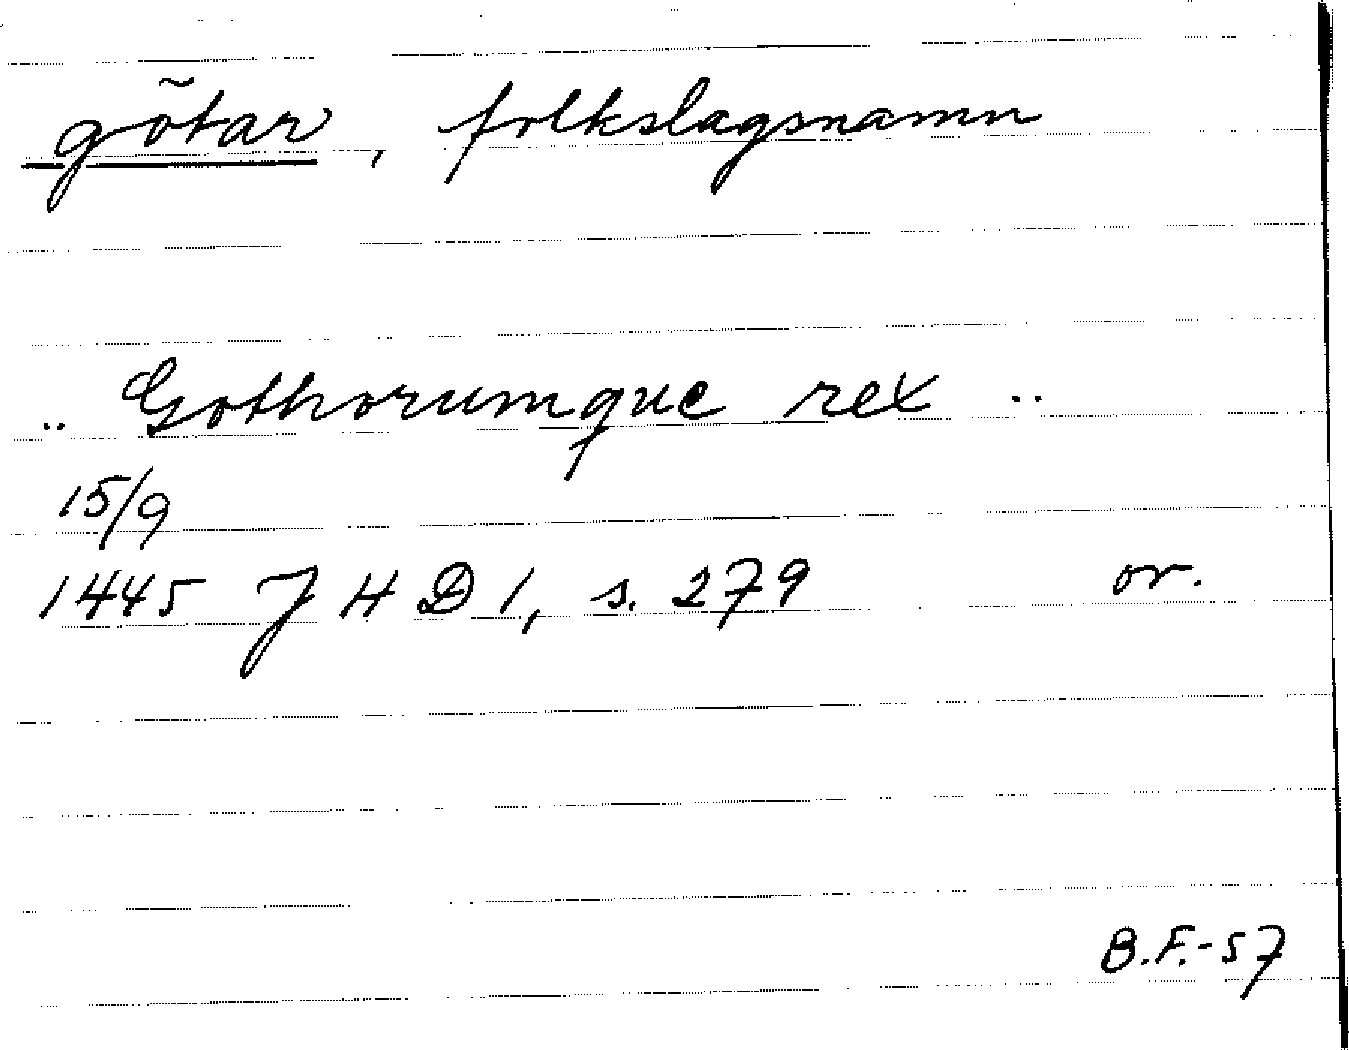 götar, folkslagsnamn
.. Gothorumque rex ..
15/9
1445 J H D 1, s. 279 or.
B.F.-57